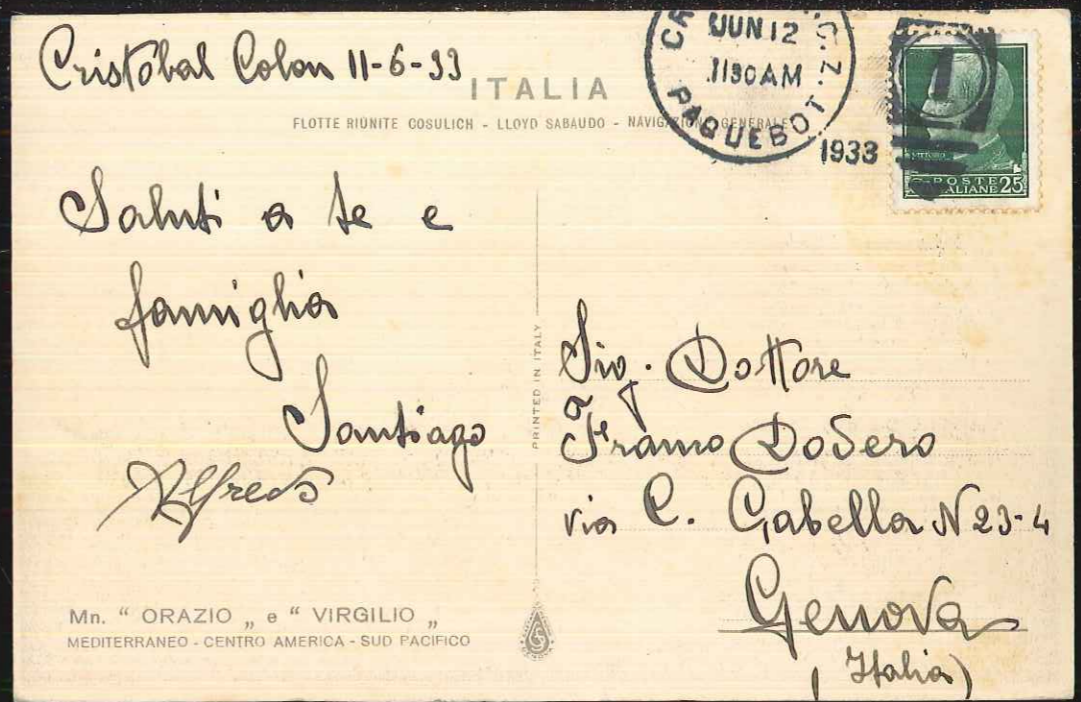 Cristobal Colon 11-6-33
ITALIA
FLOTTE RIUNITE COSULICH - LLOYD SABAUDO - NAVIGAZIONE GENERALE
JUN 12
1130 AM
C.Z.
PAQUEBOT
1933
POSTE
ITALIANE 25
Saluti a te e
famiglia
Santiago
Alfredo
PRINTED IN ITALY
Sig. Dottore
Franco Dodero
via C. Cabella N 23-4
Genova
(Italia)
Mn. “ ORAZIO „ e “ VIRGILIO „
MEDITERRANEO - CENTRO AMERICA - SUD PACIFICO